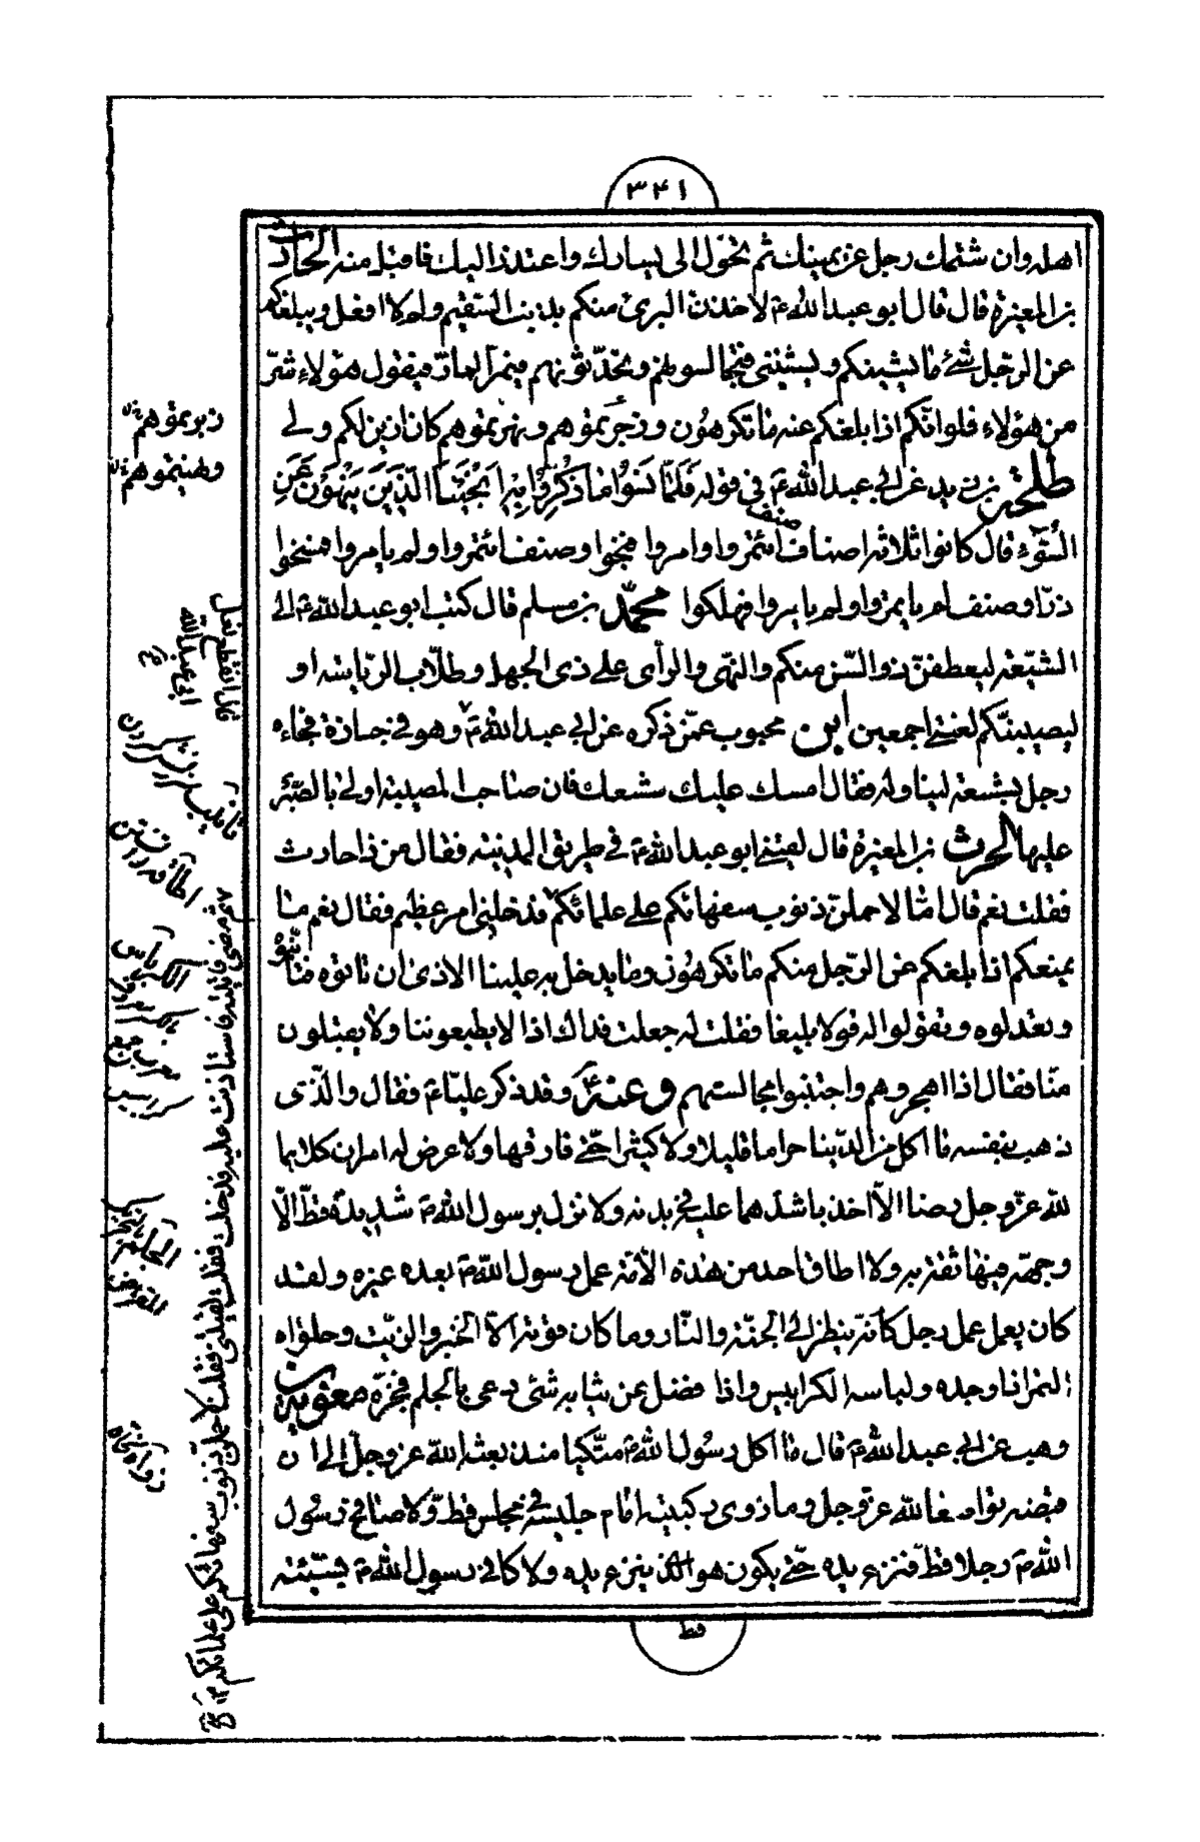 ۳۴۱
اهله وان شتمك رجل عن يمينك ثم تحوّل الى يسارك واعتذر اليك فاقبل منه الحارث
بن المغيرة قال قال ابو عبد الله ع لاخذن البرئ منكم بذنب السقيم ولم لا افعل ويبلغكم
عن الرّجل شئ ما يشينكم ويشينني فتجالسونهم وتحدّثونهم فيمرّ المارّ فيقول هؤلاء شرّ
من هؤلاء فلو انّكم اذا بلغكم عنه ما تكرهون وزجرتموهم ونهرتموهم كان ازين لكم ولي
طلحة بن زيد عن ابي عبد الله ع في قوله فَلَمَّا نَسُوا مَا ذُكِّرُوا بِهِ اَنْجَيْنَا الَّذِينَ يَنْهَوْنَ عَنِ
السّوء قال كانوا ثلاثة اصناف صنف ائتمروا وامروا فنجوا وصنف ائتمروا ولم يامروا فمسخوا
ذرّا وصنف لم ياتمروا ولم يامروا فهلكوا محمّد بن مسلم قال كتب ابو عبد الله ع الى
الشيعة ليعطفنّ ذو السّن منكم والنّهى والرأى على ذى الجهل وطلّاب الرّياسة او
ليصيبنّكم لعنتي اجمعين ابن محبوب عمّن ذكره عن ابي عبد الله ع وهو في جنازة فجاءه
رجل بشسعه ليناوله فقال امسك عليك شسعك فان صاحب المصيبة اولى بالصّبر
عليها الحرث بن المغيرة قال لقيني ابو عبد الله ع في طريق المدينة فقال من ذا حارث
فقلت نعم قال امّا لاحملنّ ذنوب سفهائكم على علمائكم قد خلني امر عظيم فقال نعم ما
يمنعكم اذا بلغكم عن الرّجل منكم ما تكرهون وما يدخل به علينا الاذى ان تاتوه فتانّبوه
وتعذلوه وتقولوا له قولا بليغا فقلت له جعلت فداك اذا لا يطيعوننا ولا يقبلون
منّا فقال اذا اهجروهم واجتنبوا مجالستهم وعنه ع وقد ذكر عليّا ع فقال والّذى
ذهب بنفسه ما اكل من الدّنيا حراما قليلا ولا كثيرا حتّى فارقها ولا عرض له امران كلاهما
لله عزّ وجل رضا الّا اخذ باشدّهما على بدنه ولا نزل برسول الله ص شديدة قطّ الّا
وجهه فيها ثقة به ولا اطاق احد من هذه الأمّة عمل رسول الله ص بعده غيره ولقد
كان يعمل عمل رجل كانّه ينظر الى الجنّة والنّار وما كان قوته الّا الخبز والزيت وحلواه
التمر اذا وجده ولباسه الكرابيس واذا فضل عن ثيابه شئ دعى بالجلم فجزّه معوية بن
وهب عن ابي عبد الله ع قال ما اكل رسول الله ص متّكيا منذ بعثه الله عز وجل الى ان
قبضه تواضعا لله عزّ وجل وما زوى ركبتيه امام جليسه في مجلس قطّ ولا صافح رسول
الله ص رجلا قطّ فنزع يده حتّى يكون هو الّذى ينزع يده ولا كافى رسول الله ص بسيّئة
قط
زبرتموهم
ونهيتموهم
ثم مضى فاتيته فاستاذنت عليه فدخلت فقلت لقيتني فقلت لاحملنّ ذنوب سفهائكم على علمائكم